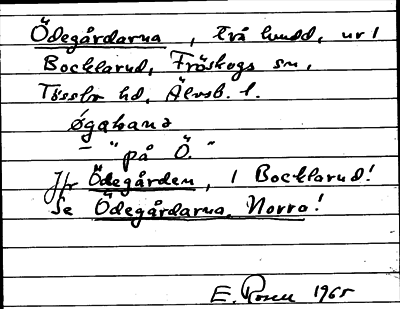 Ödegårdarna, två hmdd, nr 1
Bocklarud, Fröskogs sn,
Tössbo hd, Älvsb. l.
øgaḥana
– " på Ö. "
Jfr Ödegården, 1 Bocklarud!
Se Ödegårdarna, Norra!
E. Rosen 1965